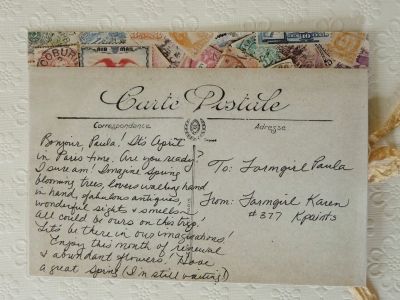 COBURG
AIR MAIL
Carte Postale
Correspondence
Adresse
Bonjour, Paula! It's April
in Paris time. Are you ready?
I sure am! Imagine Spring
blooming trees, lovers walking hand
in hand, fabulous antiques,
wonderful sights & smells...
All could be ours on this trip!
Let's be there in our imaginations!
Enjoy this month of renewal
& abundant flowers! Have
a great Spring (I'm still waiting!)
To: Farmgirl Paula
From: Farmgirl Karen
#377 Kpaints